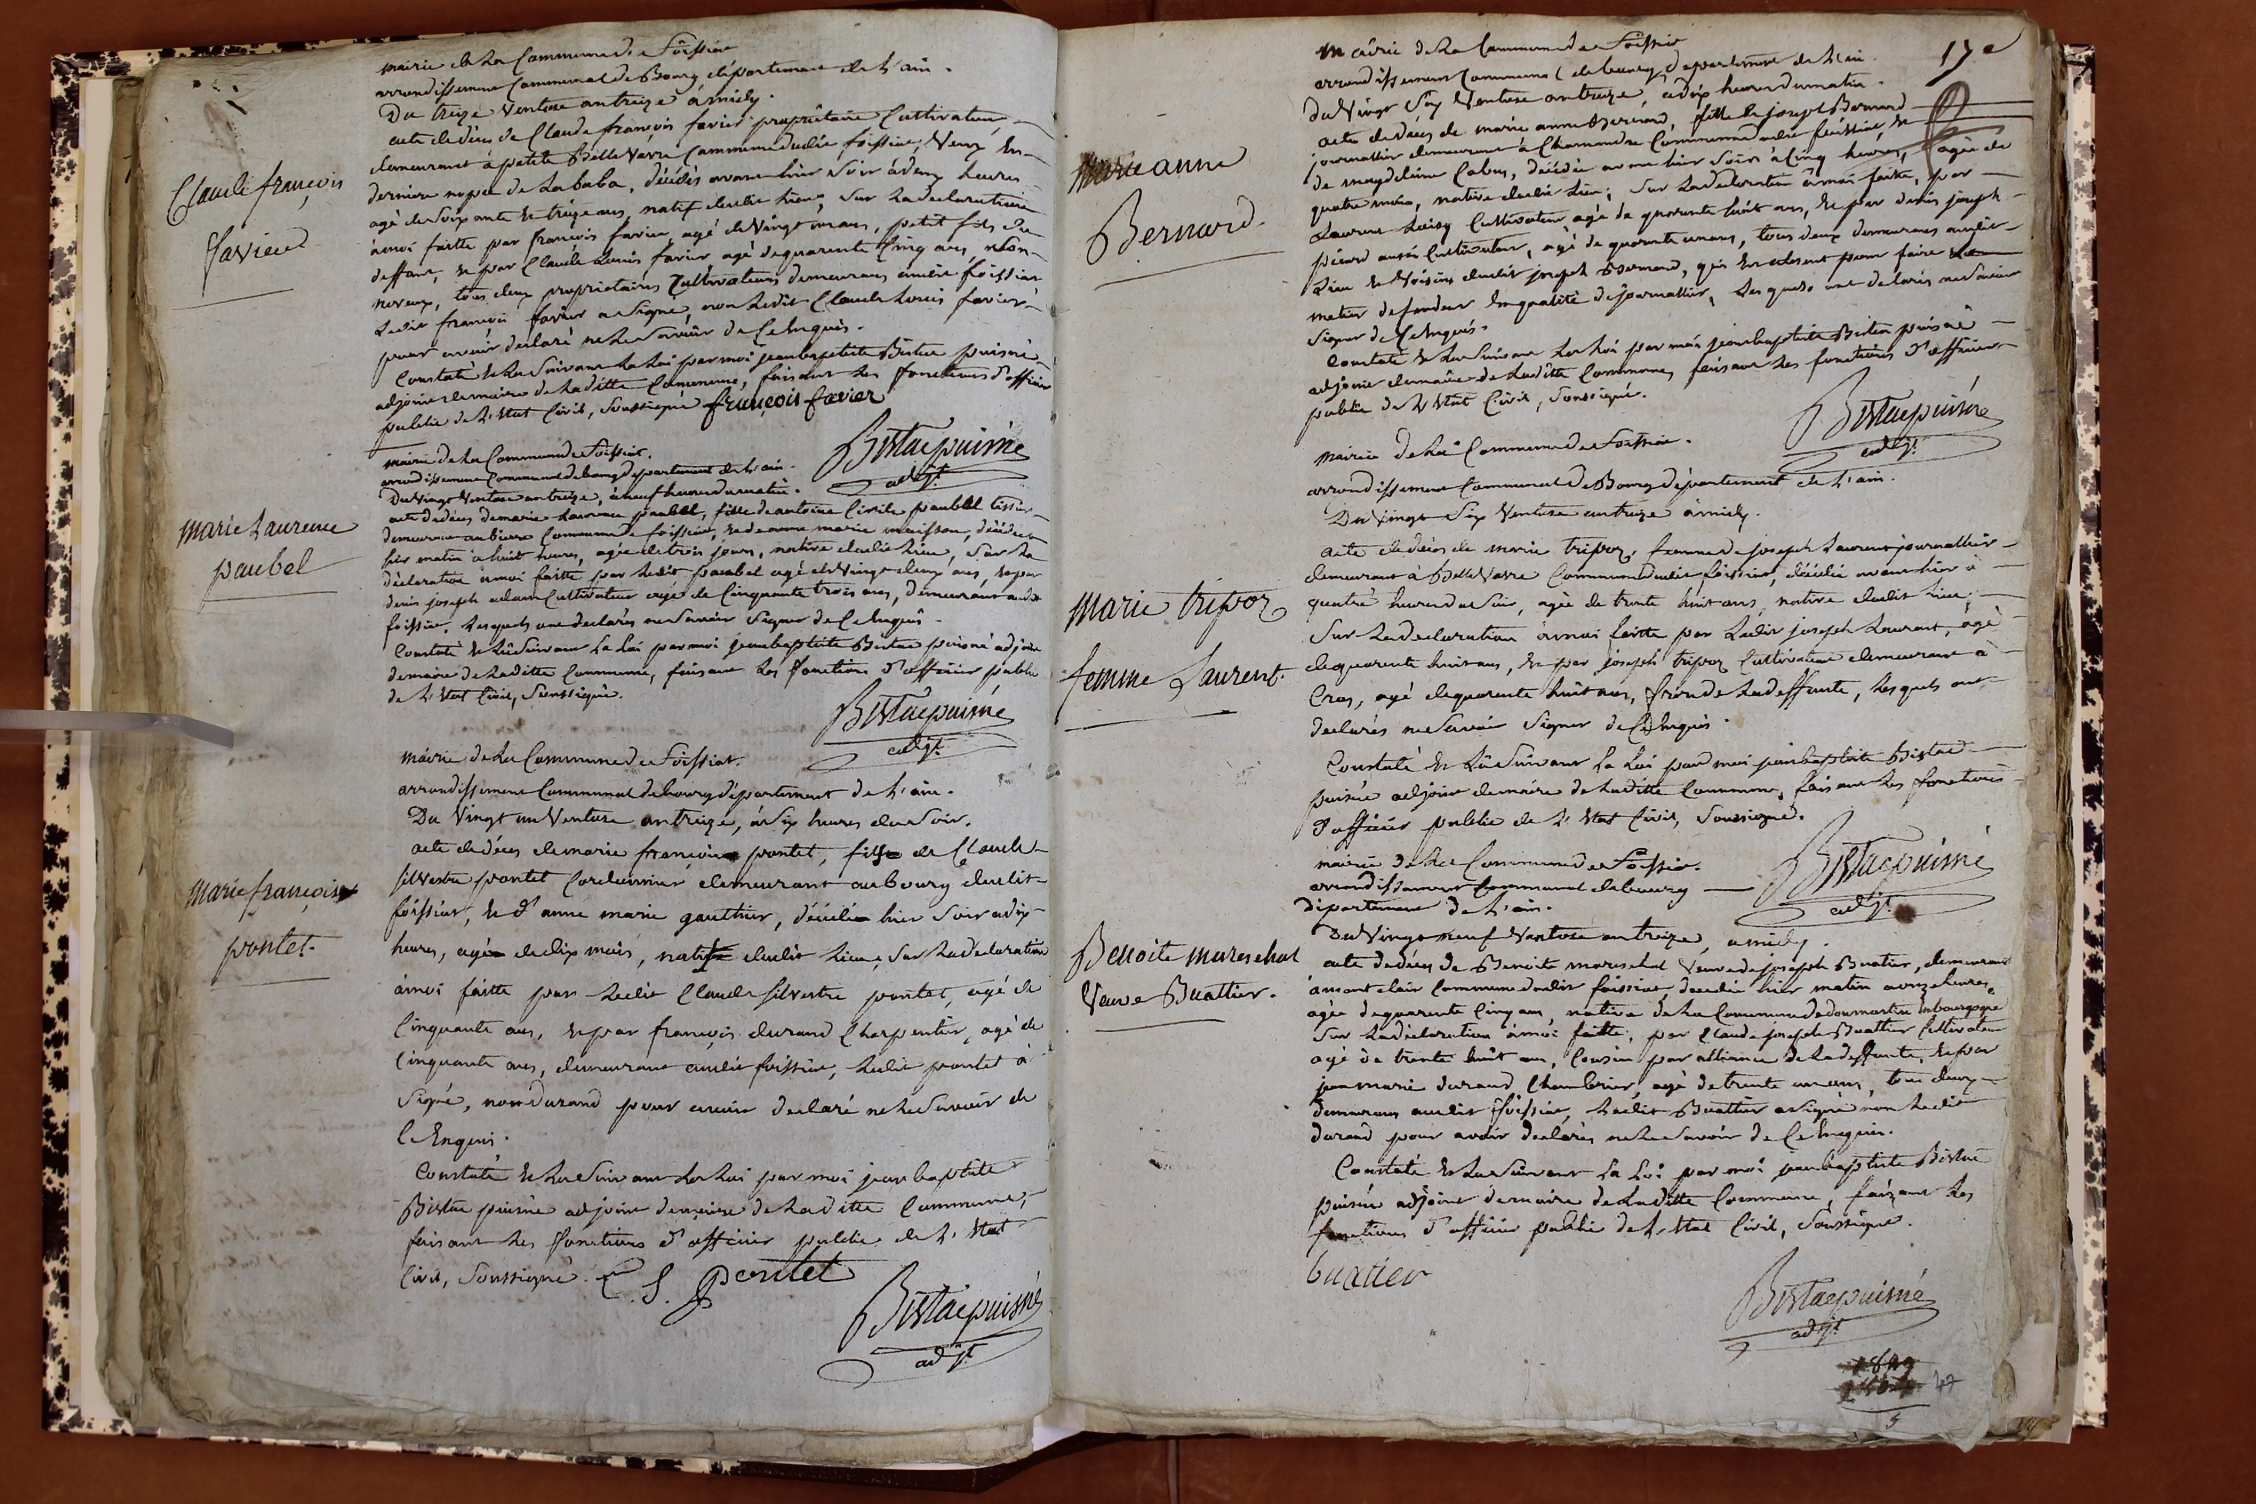 mairie de La Commune de Foissiat
arrondissement Communal de Bourg département de L'ain.
Du treize Ventose an treize à midy.
acte de déces de Claude françois favier propriétaire Cultivateur
demeurant à petite Bellevavre Commune dudit foissiat, Veuf en
derniere nopce de , décédé avant hier Soir à deux heures
agé de Soixante et treize ans, natif dudit Lieu, Sur La déclaration
à moi faitte par françois favier agé de Vingt un ans, petit fils du
deffunt, et par Claude Louis favier agé de quarente Cinq ans, son
neveux, tous deux proprietaires Cultivateurs demeurans audit foissiat
Ledit françois favier a Signé, non Ledit Claude Louis favier
pour avoir declaré ne Le Savoir de Ce Enquis.
Constaté et Lu Suivant La Loi par moi jean baptiste Bistac puisné
adjoint de maire de Laditte Commune, faisant Les fonctions d'officier
public de L'Etat Civil, Soussigné françois favier
Bistac puisné
adjt.
Claude françois
favier
mairie de La Commune de Foissiat.
arrondissement Communal de bourg département de L'ain.
Du Vingt Ventose an treize, à neuf heures du matin.
acte de déces de marie Laurence paubel, fille de antoine Civile paubel tissier
demeurant au Commune de foissiat, et de anne marie , décédée
hier matin à huit heures, agée de trois jours, native dudit Lieu, Sur La
déclaration à moi faitte par Ledit paubel agé de Vingt deux ans, et par
denis joseph adam Cultivateur agé de Cinquante trois ans, demeurant audit
foissiat, Lesquels ont declarés ne Savoir Signer de Ce Enquis.
Constaté et Lu Suivant La Loi par moi jean baptiste Bistac puisné adjoint
de maire de Laditte Commune, faisant Les fonctions d'officier public
de L'Etat Civil, Soussigné.
Bistac puisné
adjt.
marie Laurence
paubel
mairie de La Commune de Foissiat.
arrondissement Communal de bourg département de L'ain.
Du Vingt un Ventose an treize, à Six heures du Soir.
acte de déces de marie françoise pontet, fille de Claude
Silvestre pontet Cordonnier demeurant au bourg dudit
foissiat, et d'anne marie gauthier, décédée hier Soir a dix
heures, agée de dix mois, native dudit Lieu, Sur La declaration
à moi faitte par Ledit Claude Silvestre pontet, agé de
Cinquante ans, et par françois durand Charpentier, agé de
Cinquante ans, demeurant audit foissiat, Ledit pontet à
Signé, non durand pour avoir declaré ne Le Savoir de
Ce Enquis.
Constaté et Lu Suivant La Loi par moi jean baptiste
Bistac puisné adjoint de maire de Laditte Commune,
faisant Les fonctions d'officier public de L'Etat
Civil, Soussigné. C. S. Pontet
Bistac puisné
adjt
marie françoise
pontet.
17e
mairie de La Commune de Foissiat
arrondissement Communal de bourg département de L'ain.
Du Vingt Six Ventose an treize, à dix heures du matin.
acte de déces de marie anne Bernard, fille de joseph Bernard
journallier demeurant à Chamandre Commune dudit foissiat, et
de magdelaine , décédée avant hier Soir à Cinq heures, agée de
quatre mois, native dudit Lieu, Sur La declaration à moi faite, par
Laurent Cultivateur agé de quarente huit ans, et par denis joseph
Cultivateur, agé de quarente un ans, tous deux demeurans audit
Lieu et Voisins dudit joseph Bernard, qui
en qualité de journallier, Les quels ont declarés ne Savoir
Signer de Ce Enquis.
Constaté et Lu Suivant La Loi par moi jean baptiste Bistac puisné
adjoint de maire de Laditte Commune, faisant Les fonctions d'officier
public de L'Etat Civil, Soussigné.
Bistac puisné
adjt.
marie anne
Bernard.
mairie de La Commune de Foissiat.
arrondissement Communal de Bourg département de L'ain.
Du Vingt Six Ventose an treize à midy.
acte de déces de marie tripoz, femme de joseph Laurent journallier
demeurant à Bellevavre Commune dudit foissiat, décédée avant hier à
quatre heures du Soir, agée de trente huit ans, native dudit Lieu,
Sur La declaration à moi faitte par Ledit joseph Laurent, agé
de quarente huit ans, et par joseph tripoz Cultivateur demeurant à
Cras, agé de quarente huit ans, frere de La deffunte, Lesquels ont
declarés ne Savoir Signer de Ce Enquis.
Constaté et Lu Suivant La Loi par moi jean baptiste Bistac
puisné adjoint de maire de Laditte Commune, faisant Les fonctions
d'officier public de L'Etat Civil, Soussigné.
Bistac puisné
adjt.
marie tripoz
femme Laurent.
mairie de La Commune de Foissiat.
arrondissement Communal de bourg
département de L'ain.
Du Vingt neuf Ventose an treize, a midy.
acte de déces de Benoite mareschal Veuve de joseph Buatier, demeurant
à mont clair Commune dudit foissiat, decedée hier matin a onze heures,
agée de quarente Cinq ans, native de La Commune de domartin en bourgogne
Sur La declaration à moi faitte, par Claude joseph Buattier Cultivateur
agé de trente huit ans, Cousin par alliance de La deffunte, et par
jean marie durand Chambrier, agé de trente un ans, tous deux
demeurans audit foissiat, Ledit Buattier a signé non Ledit
durand pour avoir declarés ne Le Savoir de Ce Enquis.
Constaté et Lu Suivant La Loi par moi jean baptiste Bistac
puisné adjoint de maire de Laditte Commune, faisant Les
fonctions d'officier public de L'Etat Civil, Soussigné.
buatier
Bistac puisné
adjt.
Benoite mareschal
Veuve Buattier.